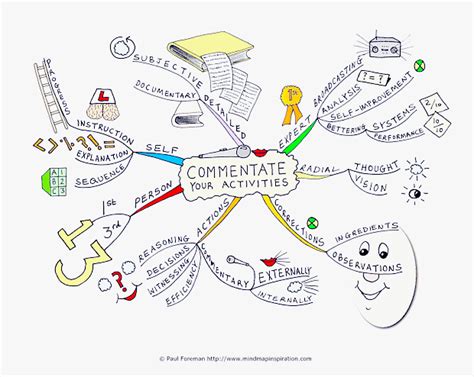 COMMENTATE
YOUR ACTIVITIES
DETAILED
SUBJECTIVE
DOCUMENTARY
EXPERT
BROADCASTING
ANALYSIS
? = ?
SELF-IMPROVEMENT
BETTERING
SYSTEMS
PERFORMANCE
2/10
10/10
1st
RADIAL
THOUGHT
VISION
CORRECTIONS
INGREDIENTS
OBSERVATIONS
ACTIONS
REASONING
DECISIONS
WITNESSING
EFFICIENCY
COMMENTARY
EXTERNALLY
INTERNALLY
PERSON
1st
3rd
13
SELF
PROGRESS
INSTRUCTION
EXPLANATION
SEQUENCE
L
A 1
B 2
C 3
© Paul Foreman http://www.mindmapinspiration.com